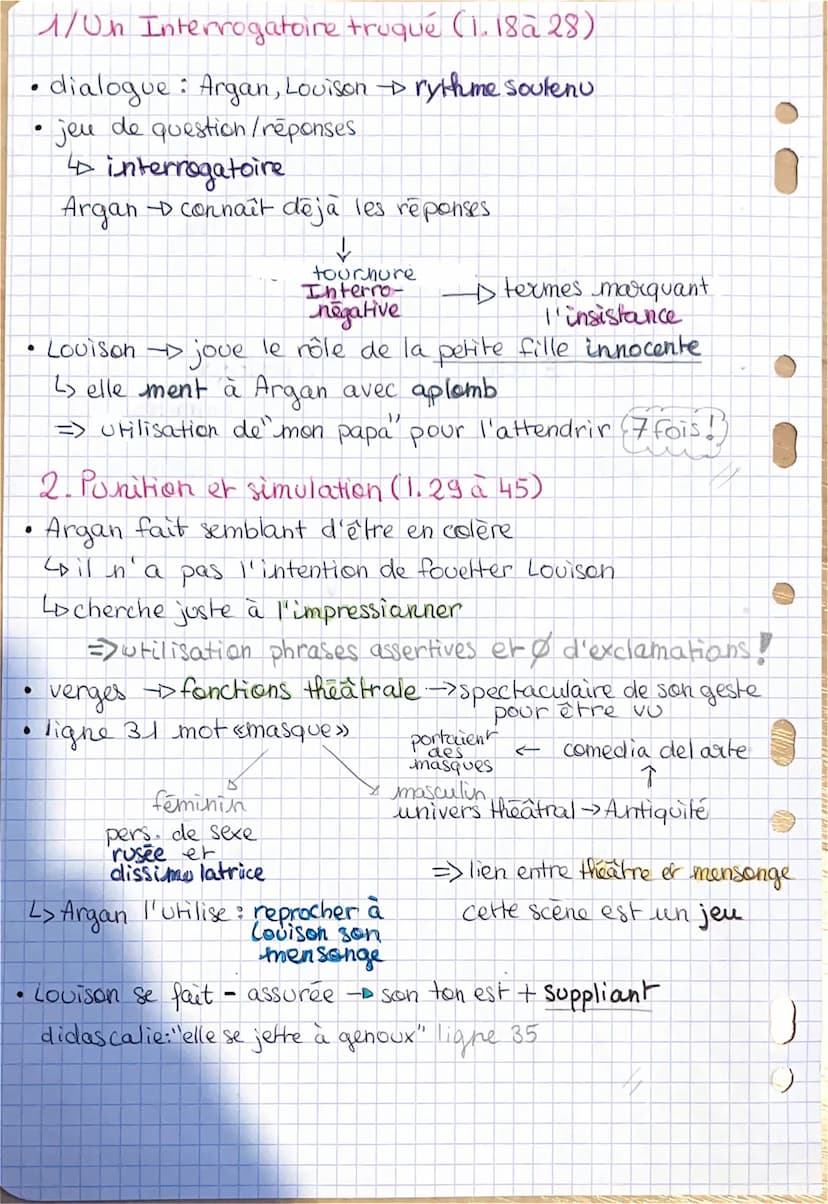 1/Un Interrogatoire truqué (l. 18 à 28)
• dialogue : Argan, Louison → rythme soutenu
• jeu de question/réponses
↳ interrogatoire
Argan → connaît déjà les réponses
↓
tournure
Interro-
négative
→ termes marquant
l'insistance
• Louison → joue le rôle de la petite fille innocente
↳ elle ment à Argan avec aplomb
=> utilisation de "mon papa" pour l'attendrir 7 fois!
2. Punition et simulation (l. 29 à 45)
• Argan fait semblant d'être en colère
↳ il n'a pas l'intention de fouetter Louison
↳ cherche juste à l'impressionner
=> utilisation phrases assertives et Ø d'exclamations !
• verges → fonctions théâtrale → spectaculaire de son geste
pour être vu
• ligne 31 mot «masque»
portaient
des
masques
← comedia del arte
↑
féminin
pers. de sexe
rusée et
dissimulatrice
masculin
univers théâtral → Antiquité
=> lien entre théâtre et mensonge
cette scène est un jeu
↳ Argan l'utilise : reprocher à
Louison son
mensonge
• Louison se fait - assurée → son ton est + suppliant
didascalie: "elle se jette à genoux" ligne 35